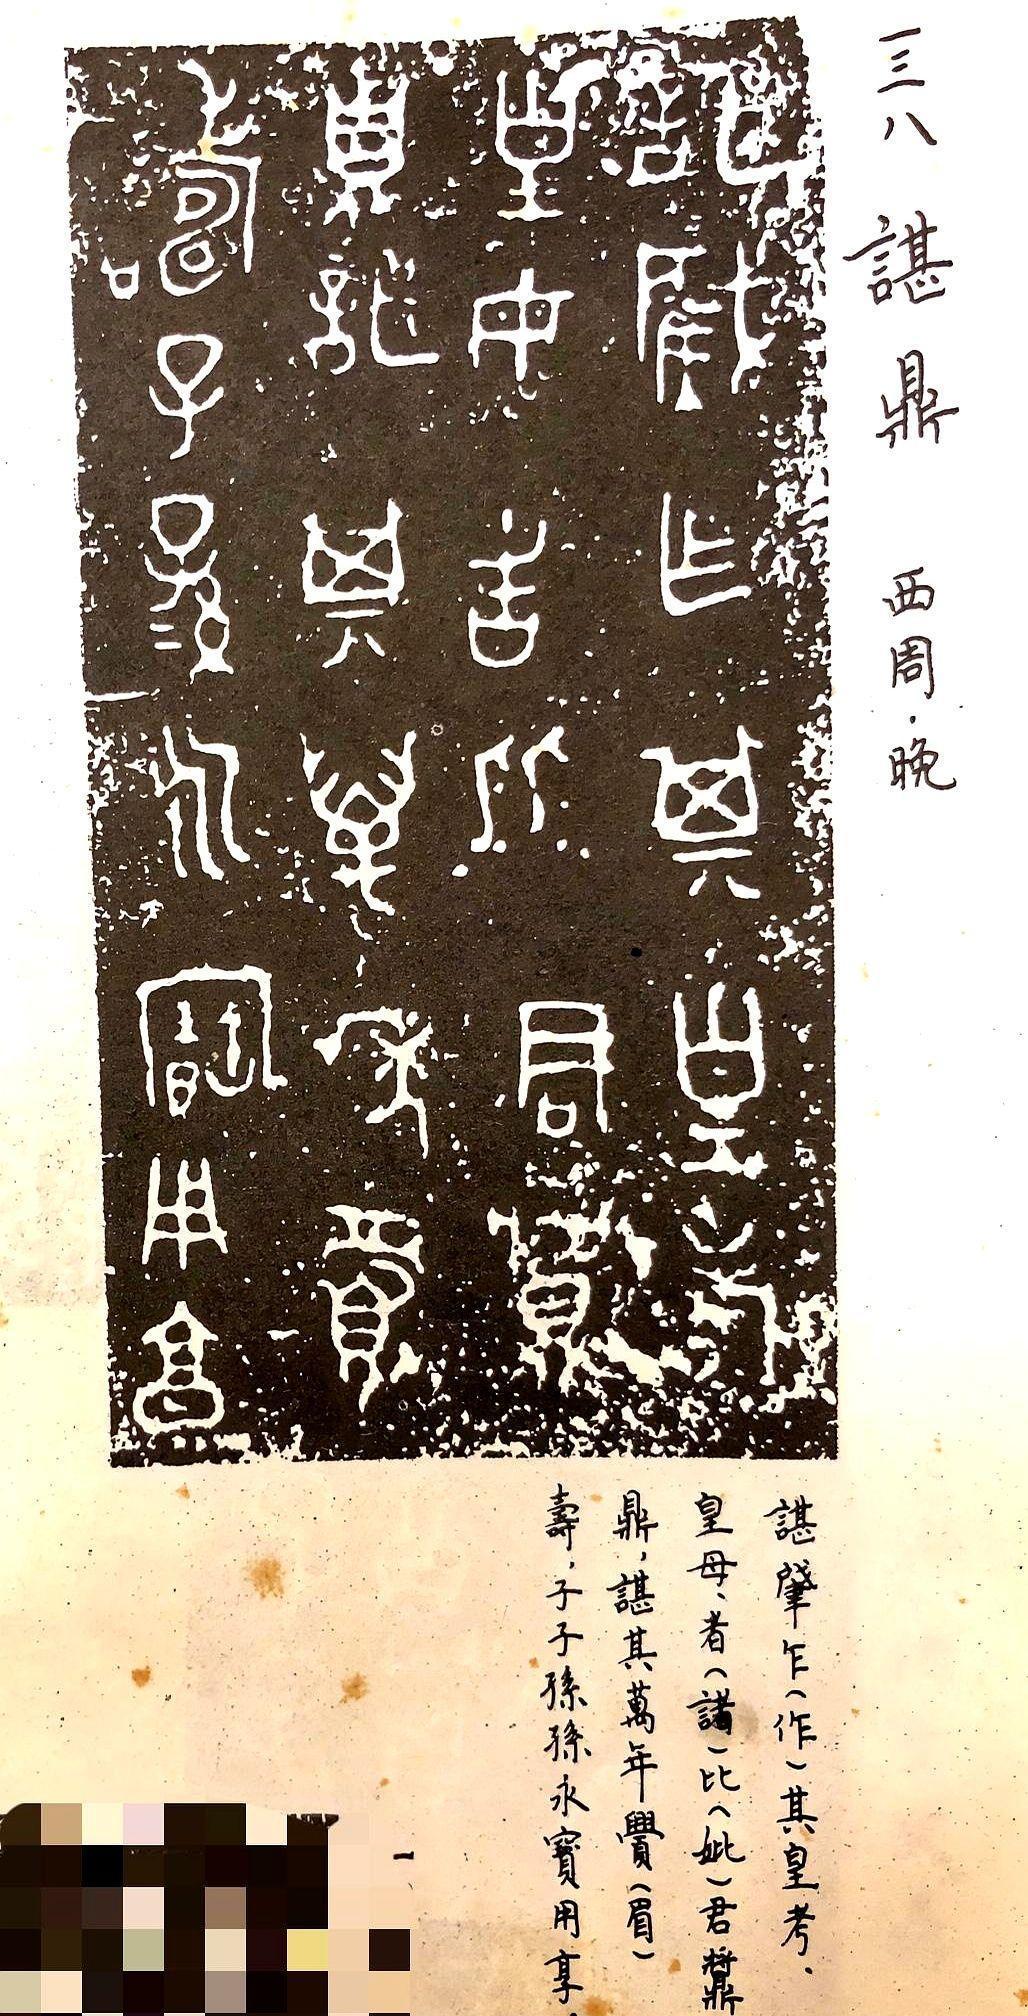 三八 諶鼎 西周·晚
諶肇乍（作）其皇考、
皇母、者（諸）比（妣）君𩱧
鼎，諶其萬年釁（眉）
壽，子子孫孫永寶用享。